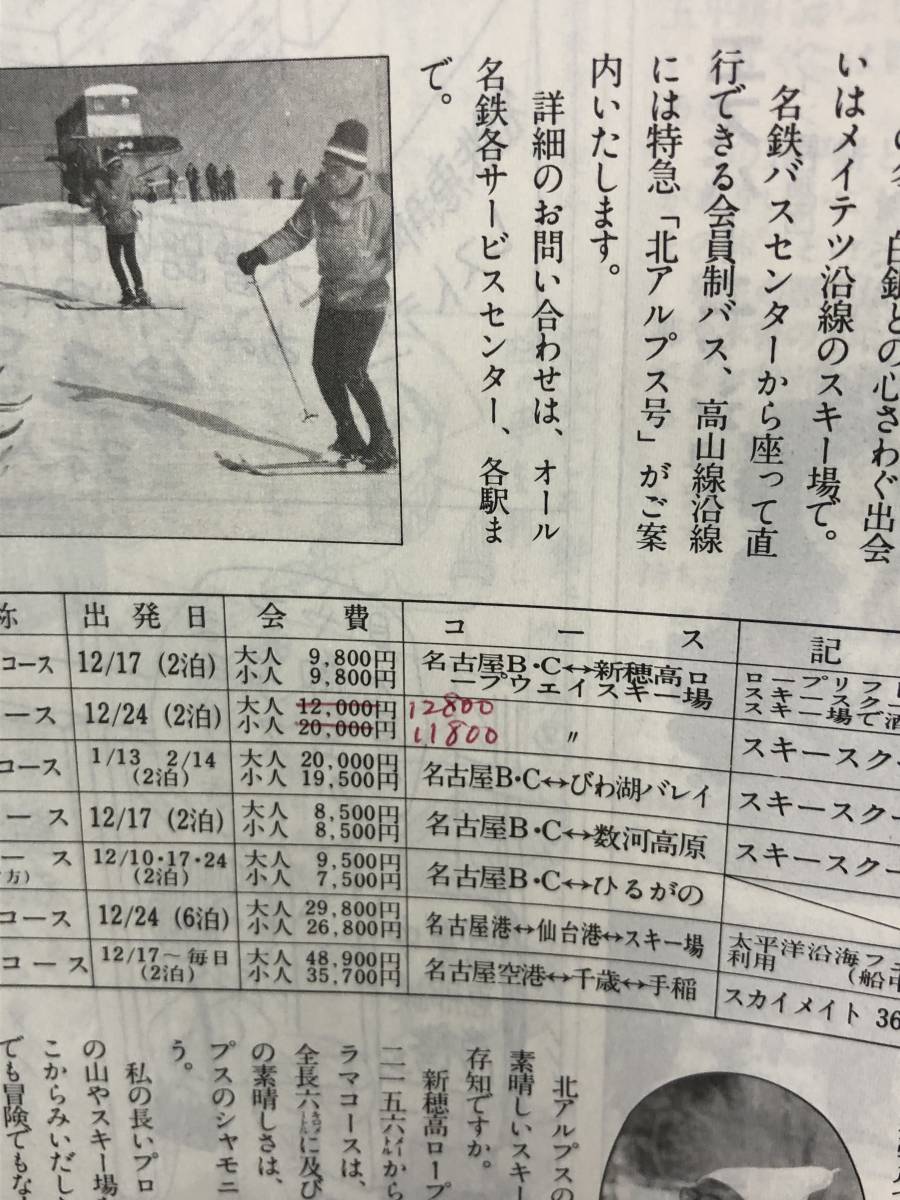 白銀との心さわぐ出会
いはメイテツ沿線のスキー場で。
名鉄バスセンターから座って直
行できる会員制バス、高山線沿線
には特急「北アルプス号」がご案
内いたします。
詳細のお問い合わせは、オール
名鉄各サービスセンター、各駅ま
で。
称 出発日 会費 コース 記
コース 12/17 (2泊) 大人 9,800円 小人 9,800円 名古屋B・C↔新穂高ロープウェイスキー場
ース 12/24 (2泊) 大人 12,000円 12800 小人 20,000円 11800 〃 スキースク
コース 1/13 2/14 (2泊) 大人 20,000円 小人 19,500円 名古屋B・C↔びわ湖バレイ スキースク
ース 12/17 (2泊) 大人 8,500円 小人 8,500円 名古屋B・C↔数河高原 スキースク
ース 方) 12/10・17・24 (2泊) 大人 9,500円 小人 7,500円 名古屋B・C↔ひるがの
コース 12/24 (6泊) 大人 29,800円 小人 26,800円 名古屋港↔仙台港↔スキー場 太平洋沿海フェ 利用 (船中
コース 12/17〜毎日 (2泊) 大人 48,900円 小人 35,700円 名古屋空港↔千歳↔手稲 スカイメイト 36
北アルプスの
素晴しいスキー
存知ですか。
新穂高ロープ
二一五六メートルから
ラマコースは、
全長六キロメートルに及び
の素晴しさは、
プスのシャモニ
う。
私の長いプロ
の山やスキー場
こからみいだし
でも冒険でもな